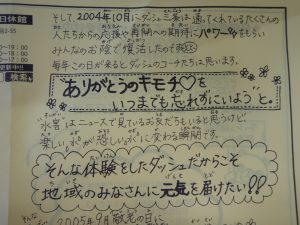 日休館
2-55
0~19:00
0~18:00
0~17:00
更新中!!
検索
そして、2004年10月にダッシュ三条は通ってくれているたくさんの
人たちからの応援や再開への期待にパワーをもらい
みんなのお陰で復活したのです
毎年この日が来るとダッシュのコーチたちは思います。
"ありがとうのキモチ♡を
いつまでも忘れずにいよう"と。
水害はニュースで見ているお友だちもいると思うけど
楽しい水が恐しい水に変わる瞬間です。
そんな体験をしたダッシュだからこそ
地域のみなさんに元気を届けたい!!
2005年9月敬老の日に